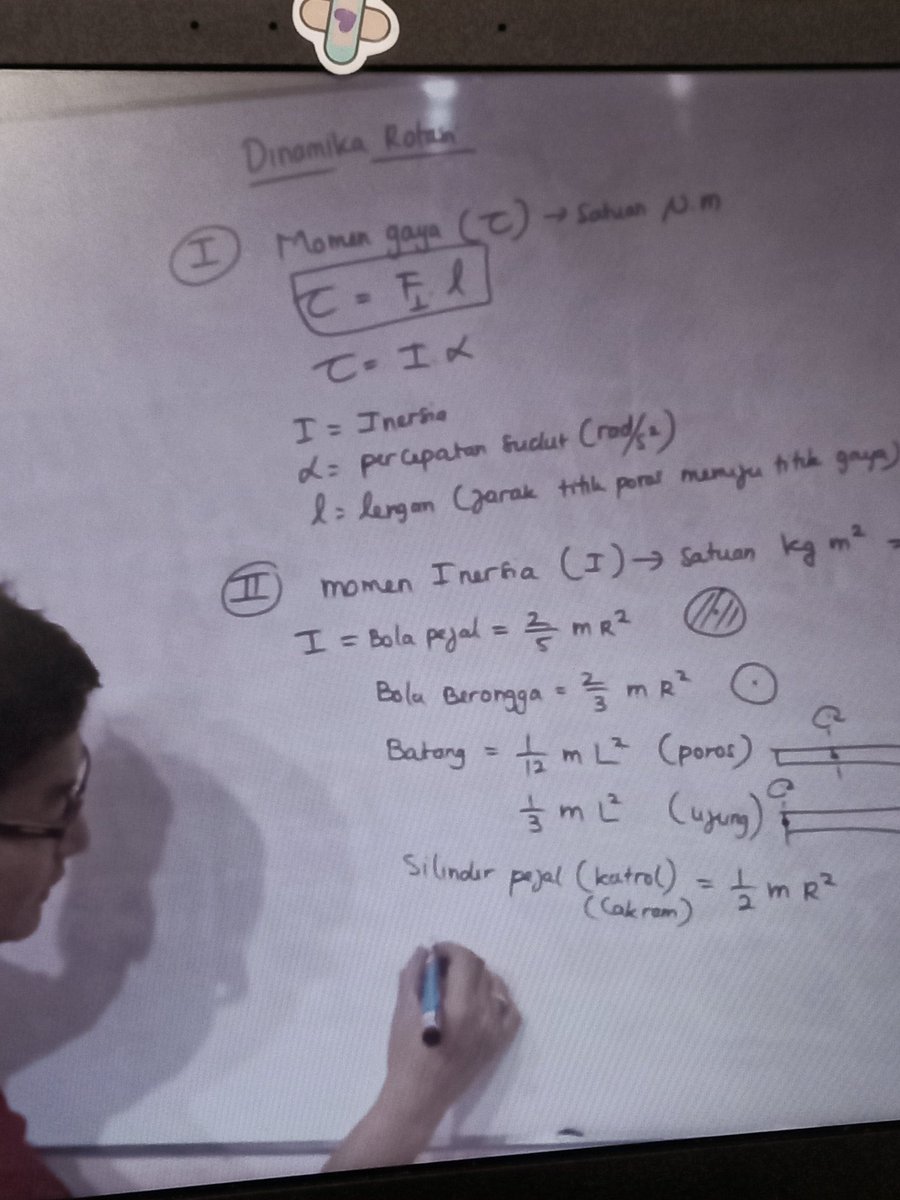 Dinamika Rotasi
I Momen gaya (τ) → Satuan N.m
τ = F⊥ l
τ = I α
I = Inersia
α = percepatan sudut (rad/s²)
l = lengan (jarak titik poros menuju titik gaya)
II momen Inersia (I) → satuan kg m² =
I = Bola pejal = 2/5 m R²
Bola Berongga = 2/3 m R²
Batang = 1/12 m L² (poros)
1/3 m L² (ujung)
Silinder pejal (katrol) = 1/2 m R²
(Cakram)